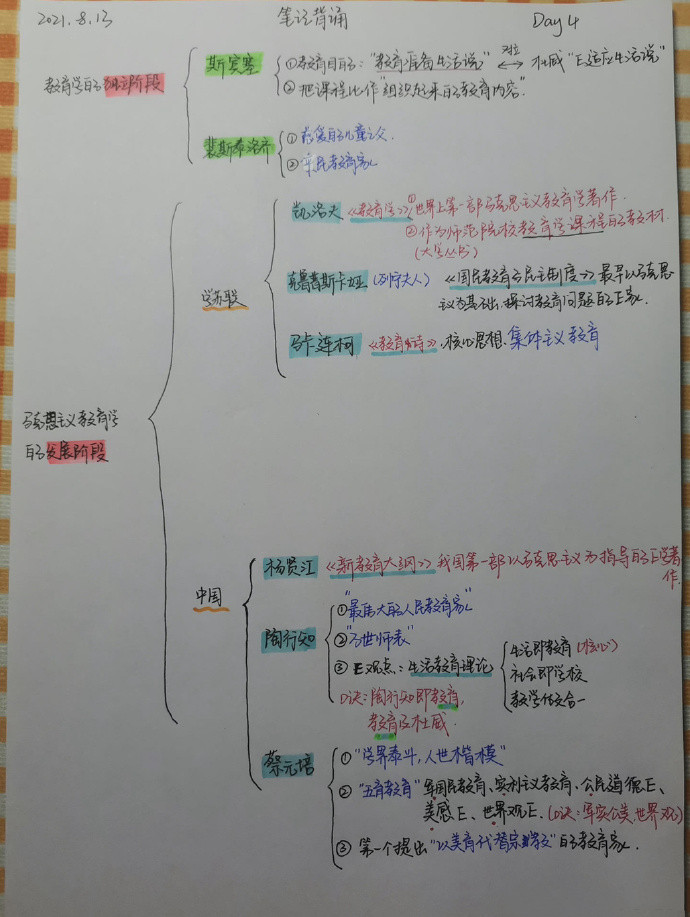 2021.8.13 笔记背诵 Day 4
教育学的独立阶段
斯宾塞 ①教育目的:"教育准备生活说" 对立 杜威"E适应生活说"
②把课程比作"组织起来的教育内容".
裴斯泰洛齐 ①慈爱的儿童之父.
②平民教育家
马克思主义教育学
的发展阶段
学苏联
凯洛夫 《教育学》①世界上第一部马克思主义教育学著作.
②作为师范院校教育学课程的教材.
(大学丛书)
克鲁普斯卡娅 (列宁夫人) 《国民教育与民主制度》最早以马克思
主义为基础,探讨教育问题的E家.
马卡连柯 《教育诗》.核心思想.集体主义教育
中国
杨贤江 《新教育大纲》我国第一部以马克思主义为指导的E学著
作.
陶行知 ①"最伟大的人民教育家"
②"万世师表"
③E观点:生活教育理论 生活即教育(核心)
社会即学校
教学做合一
口诀:陶行知即教育,
教育及杜威.
蔡元培 ①"学界泰斗,人世楷模"
②"五育教育"军国民教育、实利主义教育、公民道德E、
美感E、世界观E.(口诀:军实公美,世界观)
③第一个提出"以美育代替宗教"的教育家.